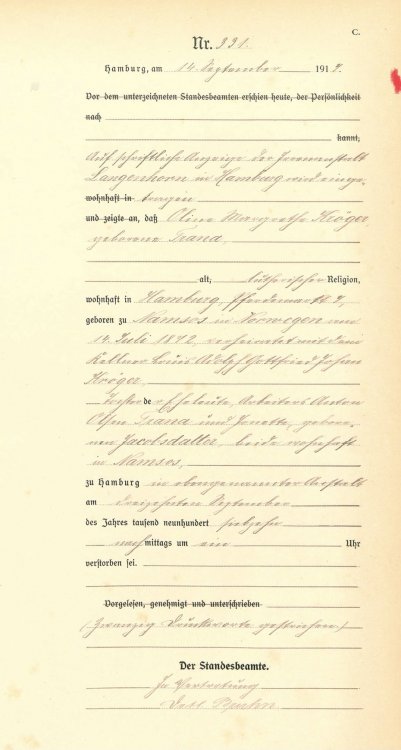 C.
Nr. 331.
Hamburg, am 14. September 1917.
Vor dem unterzeichneten Standesbeamten erschien heute, der Persönlichkeit
nach
kannt,
Auf schriftliche Anzeige der Irrenanstalt
Langenhorn in Hamburg wird einge-
wohnhaft in tragen
und zeigte an, daß Oline Margrethe Kröger
geborene Trana,
alt, lutherischer Religion,
wohnhaft in Hamburg, Pferdemarkt 7,
geboren zu Namsos in Norwegen am
14. Juli 1872, verheiratet mit dem
Kellner Louis Adolf Gottfried Johan
Kröger,
Tochter der Eheleute, Arbeiters Anton
Olsen Trana und Jonette, gebore-
nen Jacobsdatter, beide wohnhaft
in Namsos,
zu Hamburg in obengenannter Anstalt
am dreizehnten September
des Jahres tausend neunhundert siebzehn
nachmittags um ein Uhr
verstorben sei.
Vorgelesen, genehmigt und unterschrieben
(Zwanzig Druckworte gestrichen)
Der Standesbeamte.
In Vertretung